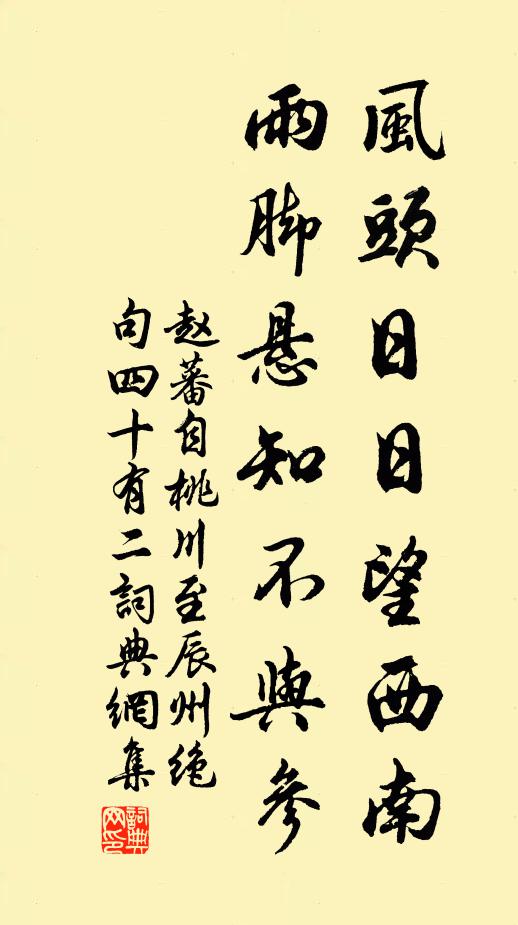 風頭日日望西南
雨脚悬知不與參
赵蕃自桃川至辰州绝
句四十有二詞典網集
詞典
网印